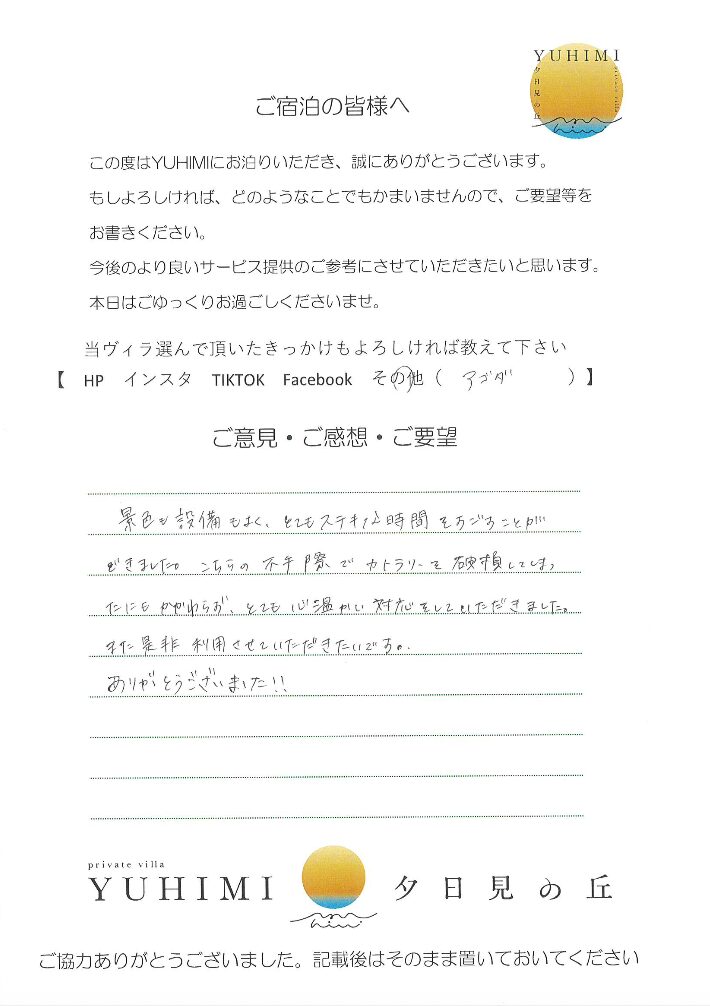 YUHIMI
夕日見の丘
private villa
ご宿泊の皆様へ
この度はYUHIMIにお泊りいただき、誠にありがとうございます。
もしよろしければ、どのようなことでもかまいませんので、ご要望等を
お書きください。
今後のより良いサービス提供のご参考にさせていただきたいと思います。
本日はごゆっくりお過ごしくださいませ。
当ヴィラ選んで頂いたきっかけもよろしければ教えて下さい
【 HP インスタ TIKTOK Facebook その他（ アゴダ ）】
ご意見・ご感想・ご要望
景色も設備もよく、とてもステキな時間をすごすことが
できました。こちらの不手際でカトラリーを破損してしまっ
たにもかかわらず、とても心温かい対応をしていただきました。
また是非利用させていただきたいです。
ありがとうございました!!
private villa
YUHIMI 夕日見の丘
ご協力ありがとうございました。記載後はそのまま置いておいてください